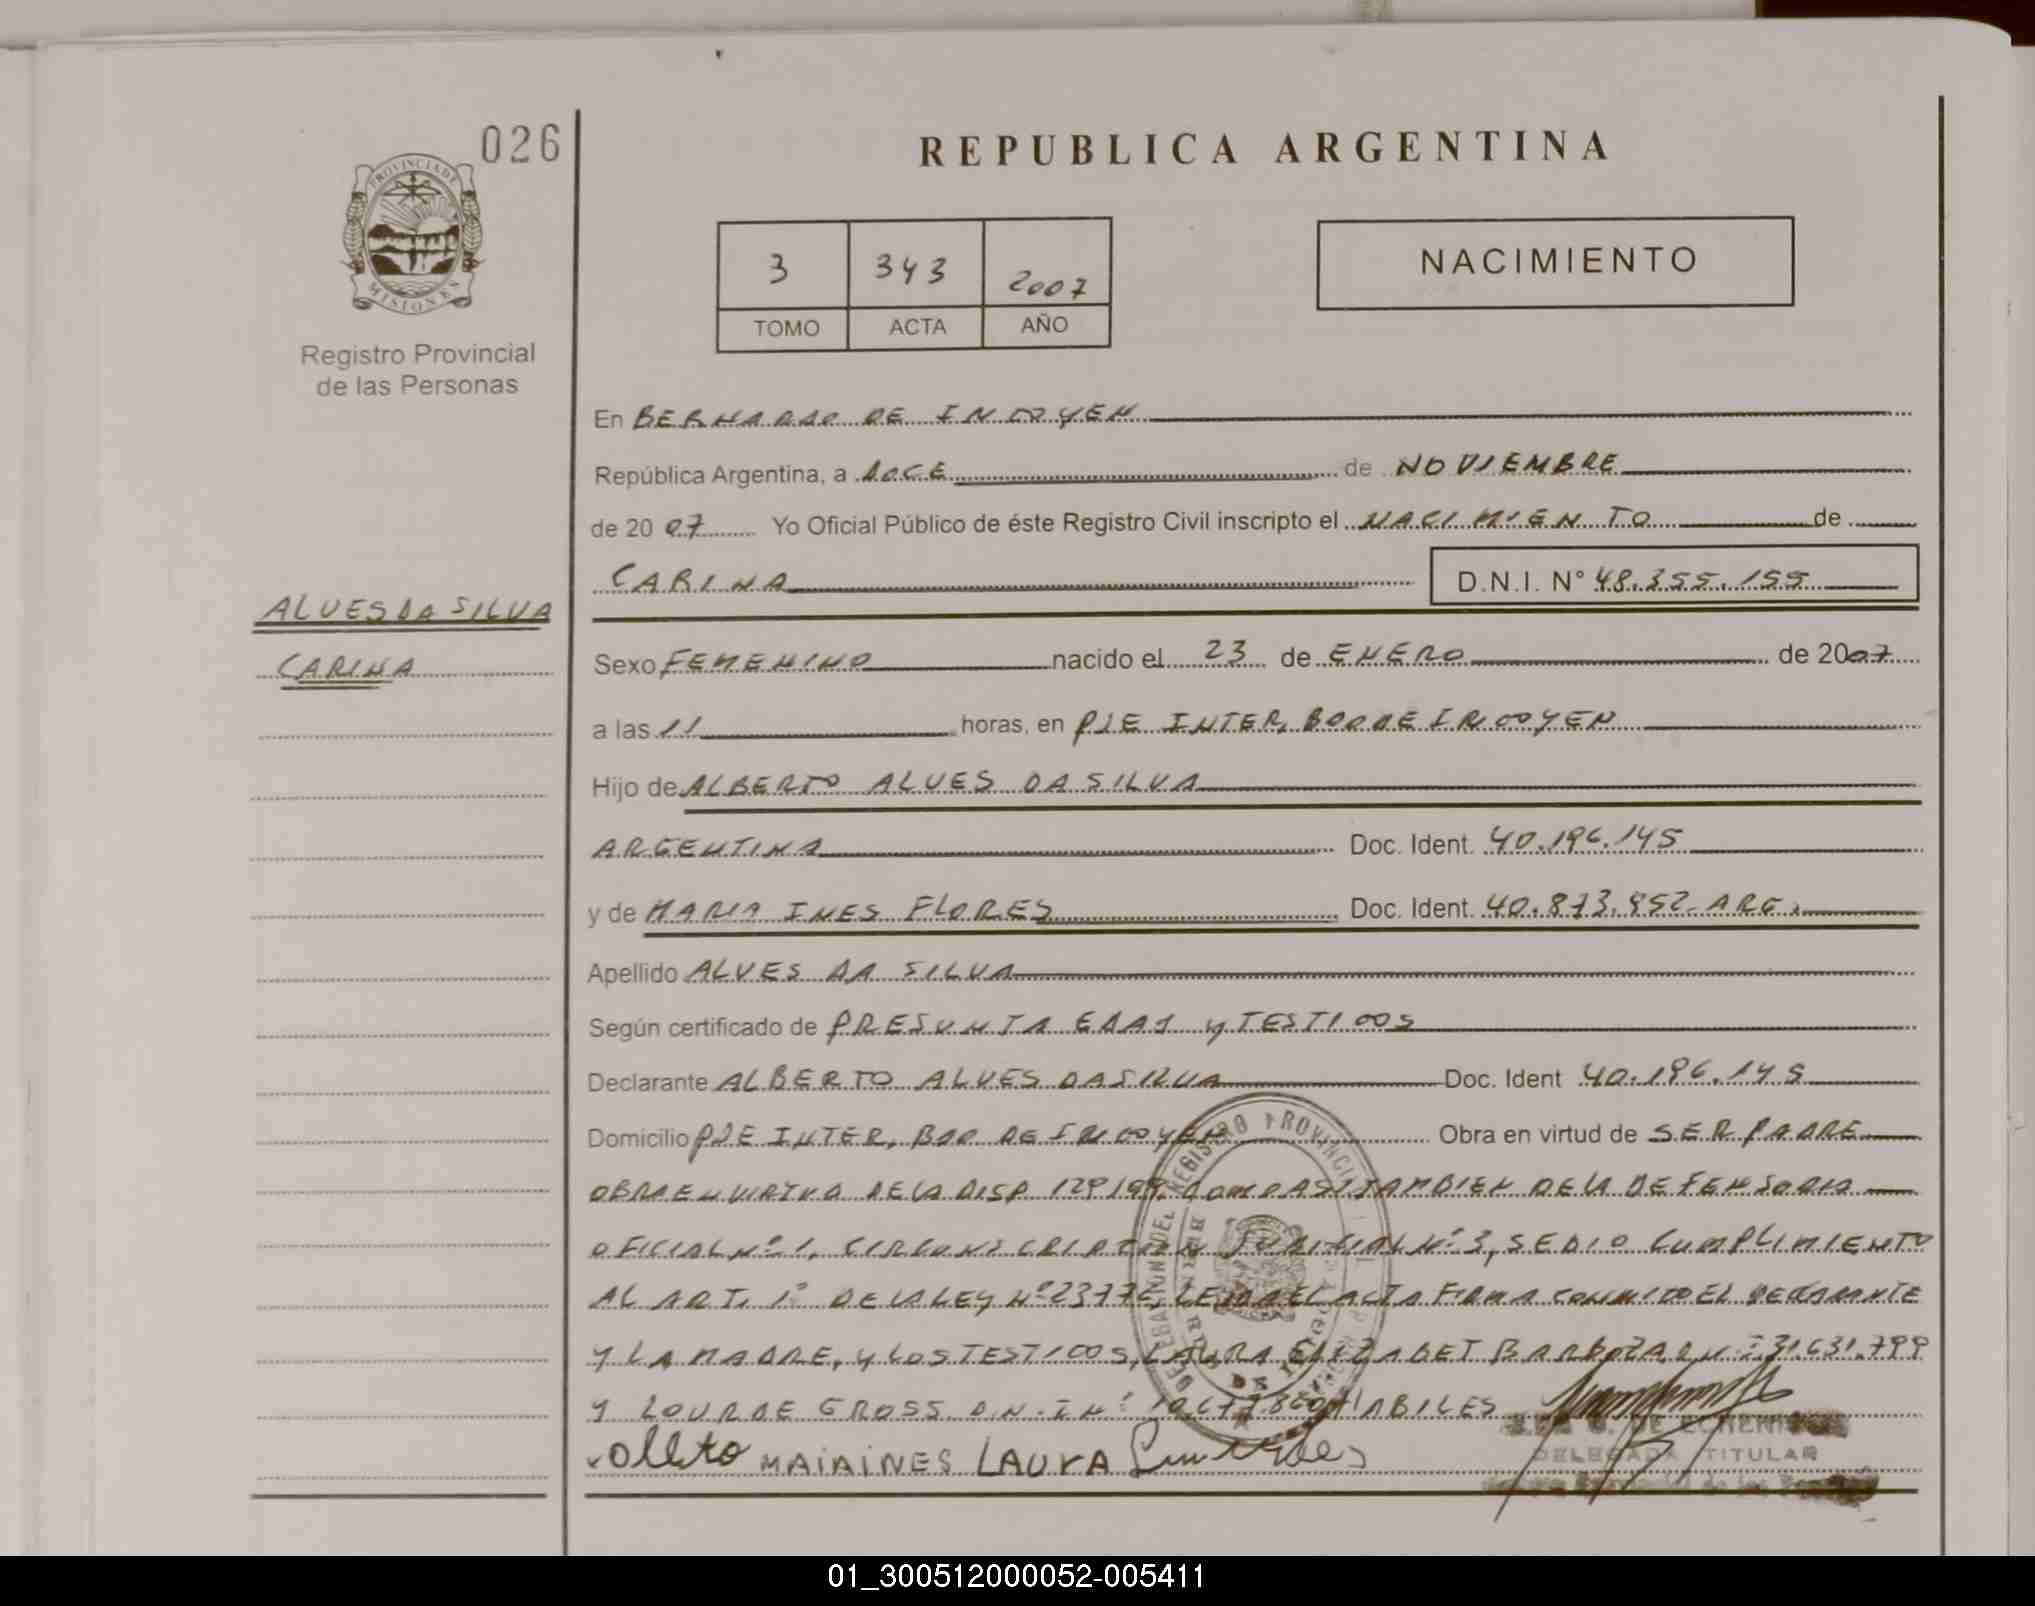 026
PROVINCIA DE MISIONES
Registro Provincial
de las Personas
REPUBLICA ARGENTINA
3 343 2007
TOMO ACTA AÑO
NACIMIENTO
En BERNARDO DE IRIGOYEN
República Argentina, a DOCE de NOVIEMBRE
de 2007 Yo Oficial Público de éste Registro Civil inscripto el NACIMIENTO de
CARINA D.N.I. N° 48.355.155
ALVES DA SILVA
CARINA
Sexo FEMENINO nacido el 23 de ENERO de 2007
a las 11 horas, en PJE INTER, BDO DE IRIGOYEN
Hijo de ALBERTO ALVES DA SILVA
ARGENTINA Doc. Ident. 40.196.145
y de MARIA INES FLORES Doc. Ident. 40.873.952 ARG.
Apellido ALVES DA SILVA
Según certificado de PRESUNTA EDAD y TESTIGOS
Declarante ALBERTO ALVES DA SILVA Doc. Ident 40.196.145
Domicilio PJE INTER, BDO DE IRIGOYEN Obra en virtud de SER PADRE
OBRA EN VIRTUD DE LA DISP 129/99, COMO ASI TAMBIEN DE LA DEFENSORIA
OFICIAL Nº 1, CIRCUNSCRIPCION JUDICIAL Nº 3, SE DIO CUMPLIMIENTO
AL ART. 1º DE LA LEY Nº 23776, LEIDA EL ACTA FIRMA CONMIGO EL DECLARANTE
Y LA MADRE, Y LOS TESTIGOS, LAURA ELIZABET BARBOZA 31.631.799
Y LOURDE GROSS D.N.I Nº HABILES
MAIAINES LAURA
DELEGADA TITULAR
01_300512000052-005411